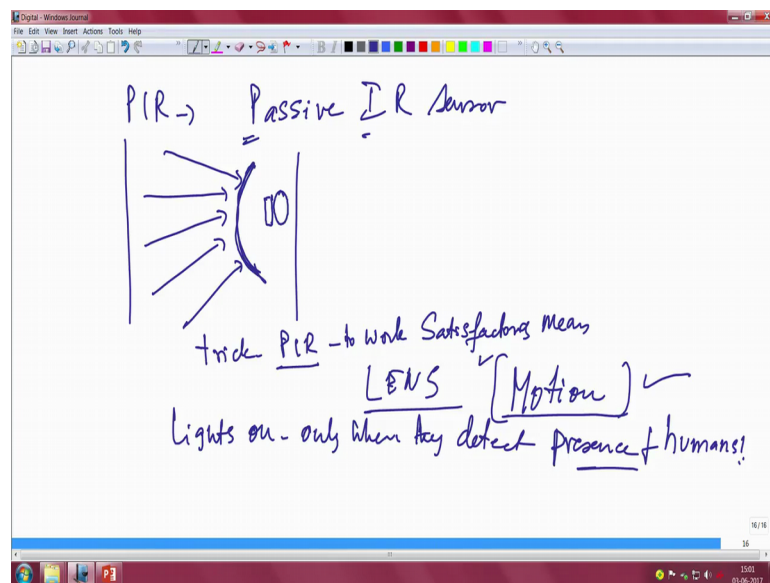 Digital - Windows Journal
File Edit View Insert Actions Tools Help
PIR → Passive IR Sensor
trick PIR - to work Satisfactory mean
LENS [Motion]
Lights on - only when they detect presence of humans!
16/16
16
15:01
03-06-2017